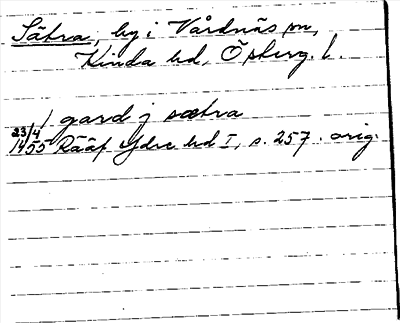 Sätra, by i Vårdnäs sn,
Kinda hd, Österg. l.
1 gard j sætra
23/4 1455 Rääf Ydre hd I, s. 257. orig.